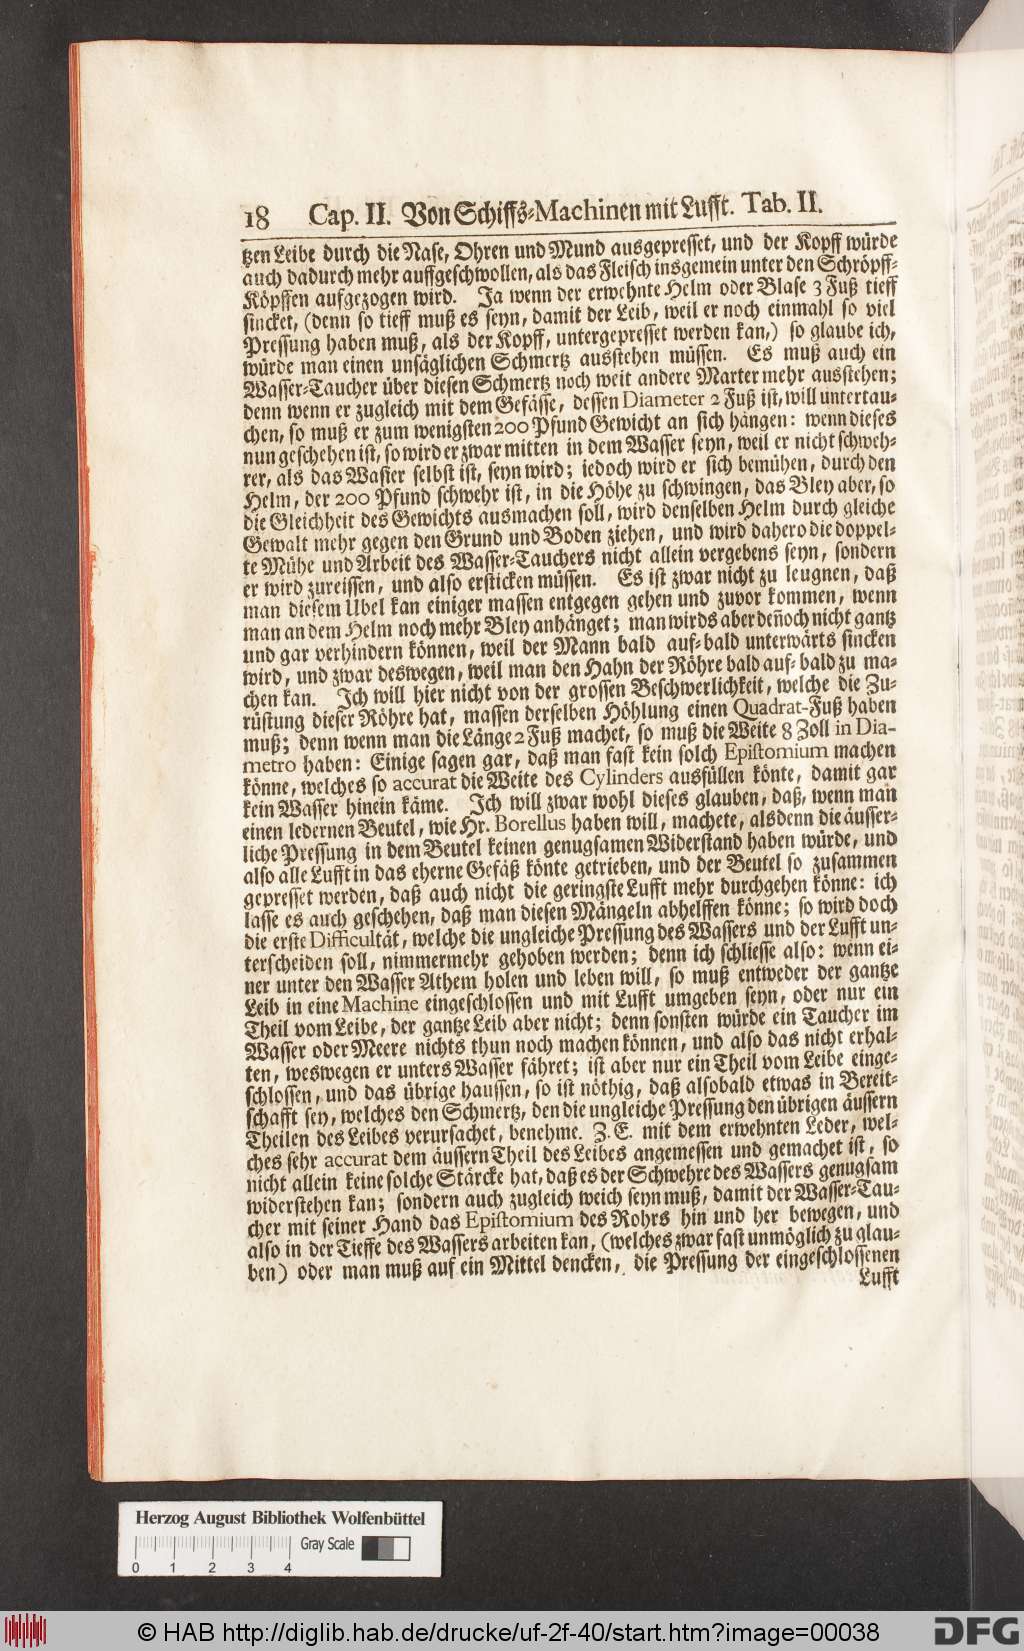 18 Cap. II. Von Schiffs-Machinen mit Lufft. Tab. II.
tzen Leibe durch die Nase, Ohren und Mund ausgepresset, und der Kopff würde
auch dadurch mehr auffgeschwollen, als das Fleisch insgemein unter den Schröpff-
Köpffen aufgezogen wird. Ja wenn der erwehnte Helm oder Blase 3 Fuß tieff
sincket, (denn so tieff muß es seyn, damit der Leib, weil er noch einmahl so viel
Pressung haben muß, als der Kopff, untergepresset werden kan,) so glaube ich,
würde man einen unsäglichen Schmertz ausstehen müssen. Es muß auch ein
Wasser-Taucher über diesen Schmertz noch weit andere Marter mehr ausstehen;
denn wenn er zugleich mit dem Gefässe, dessen Diameter 2 Fuß ist, will untertau-
chen, so muß er zum wenigsten 200 Pfund Gewicht an sich hängen: wenn dieses
nun geschehen ist, so wird er zwar mitten in dem Wasser seyn, weil er nicht schweh-
rer, als das Wasser selbst ist, seyn wird; jedoch wird er sich bemühen, durch den
Helm, der 200 Pfund schwehr ist, in die Höhe zu schwingen, das Bley aber, so
die Gleichheit des Gewichts ausmachen soll, wird denselben Helm durch gleiche
Gewalt mehr gegen den Grund und Boden ziehen, und wird dahero die doppel-
te Mühe und Arbeit des Wasser-Tauchers nicht allein vergebens seyn, sondern
er wird zureissen, und also ersticken müssen. Es ist zwar nicht zu leugnen, daß
man diesem Ubel kan einiger massen entgegen gehen und zuvor kommen, wenn
man an dem Helm noch mehr Bley anhänget; man wirds aber den̄och nicht gantz
und gar verhindern können, weil der Mann bald auf- bald unterwärts sincken
wird, und zwar deswegen, weil man den Hahn der Röhre bald auf- bald zu ma-
chen kan. Ich will hier nicht von der grossen Beschwerlichkeit, welche die Zu-
rüstung dieser Röhre hat, massen derselben Höhlung einen Quadrat-Fuß haben
muß; denn wenn man die Länge 2 Fuß machet, so muß die Weite 8 Zoll in Dia-
metro haben: Einige sagen gar, daß man fast kein solch Epistomium machen
könne, welches so accurat die Weite des Cylinders ausfüllen könte, damit gar
kein Wasser hinein käme. Ich will zwar wohl dieses glauben, daß, wenn man
einen ledernen Beutel, wie Hr. Borellus haben will, machete, alsdenn die äusser-
liche Pressung in dem Beutel keinen genugsamen Widerstand haben würde, und
also alle Lufft in das eherne Gefäß könte getrieben, und der Beutel so zusammen
gepresset werden, daß auch nicht die geringste Lufft mehr durchgehen könne: ich
lasse es auch geschehen, daß man diesen Mängeln abhelffen könne; so wird doch
die erste Difficultät, welche die ungleiche Pressung des Wassers und der Lufft un-
terscheiden soll, nimmermehr gehoben werden; denn ich schliesse also: wenn ei-
ner unter den Wasser Athem holen und leben will, so muß entweder der gantze
Leib in eine Machine eingeschlossen und mit Lufft umgeben seyn, oder nur ein
Theil vom Leibe, der gantze Leib aber nicht; denn sonsten würde ein Taucher im
Wasser oder Meere nichts thun noch machen können, und also das nicht erhal-
ten, weswegen er unters Wasser fähret; ist aber nur ein Theil vom Leibe einge-
schlossen, und das übrige haussen, so ist nöthig, daß alsobald etwas in Bereit-
schafft sey, welches den Schmertz, den die ungleiche Pressung den übrigen äussern
Theilen des Leibes verursachet, benehme. Z. E. mit dem erwehnten Leder, wel-
ches sehr accurat dem äussern Theil des Leibes angemessen und gemachet ist, so
nicht allein keine solche Stärcke hat, daß es der Schwehre des Wassers genugsam
widerstehen kan; sondern auch zugleich weich seyn muß, damit der Wasser-Tau-
cher mit seiner Hand das Epistomium des Rohrs hin und her bewegen, und
also in der Tieffe des Wassers arbeiten kan, (welches zwar fast unmöglich zu glau-
ben) oder man muß auf ein Mittel dencken, die Pressung der eingeschlossenen
Lufft
Herzog August Bibliothek Wolfenbüttel
Gray Scale
0 1 2 3 4
© HAB http://diglib.hab.de/drucke/uf-2f-40/start.htm?image=00038
DFG